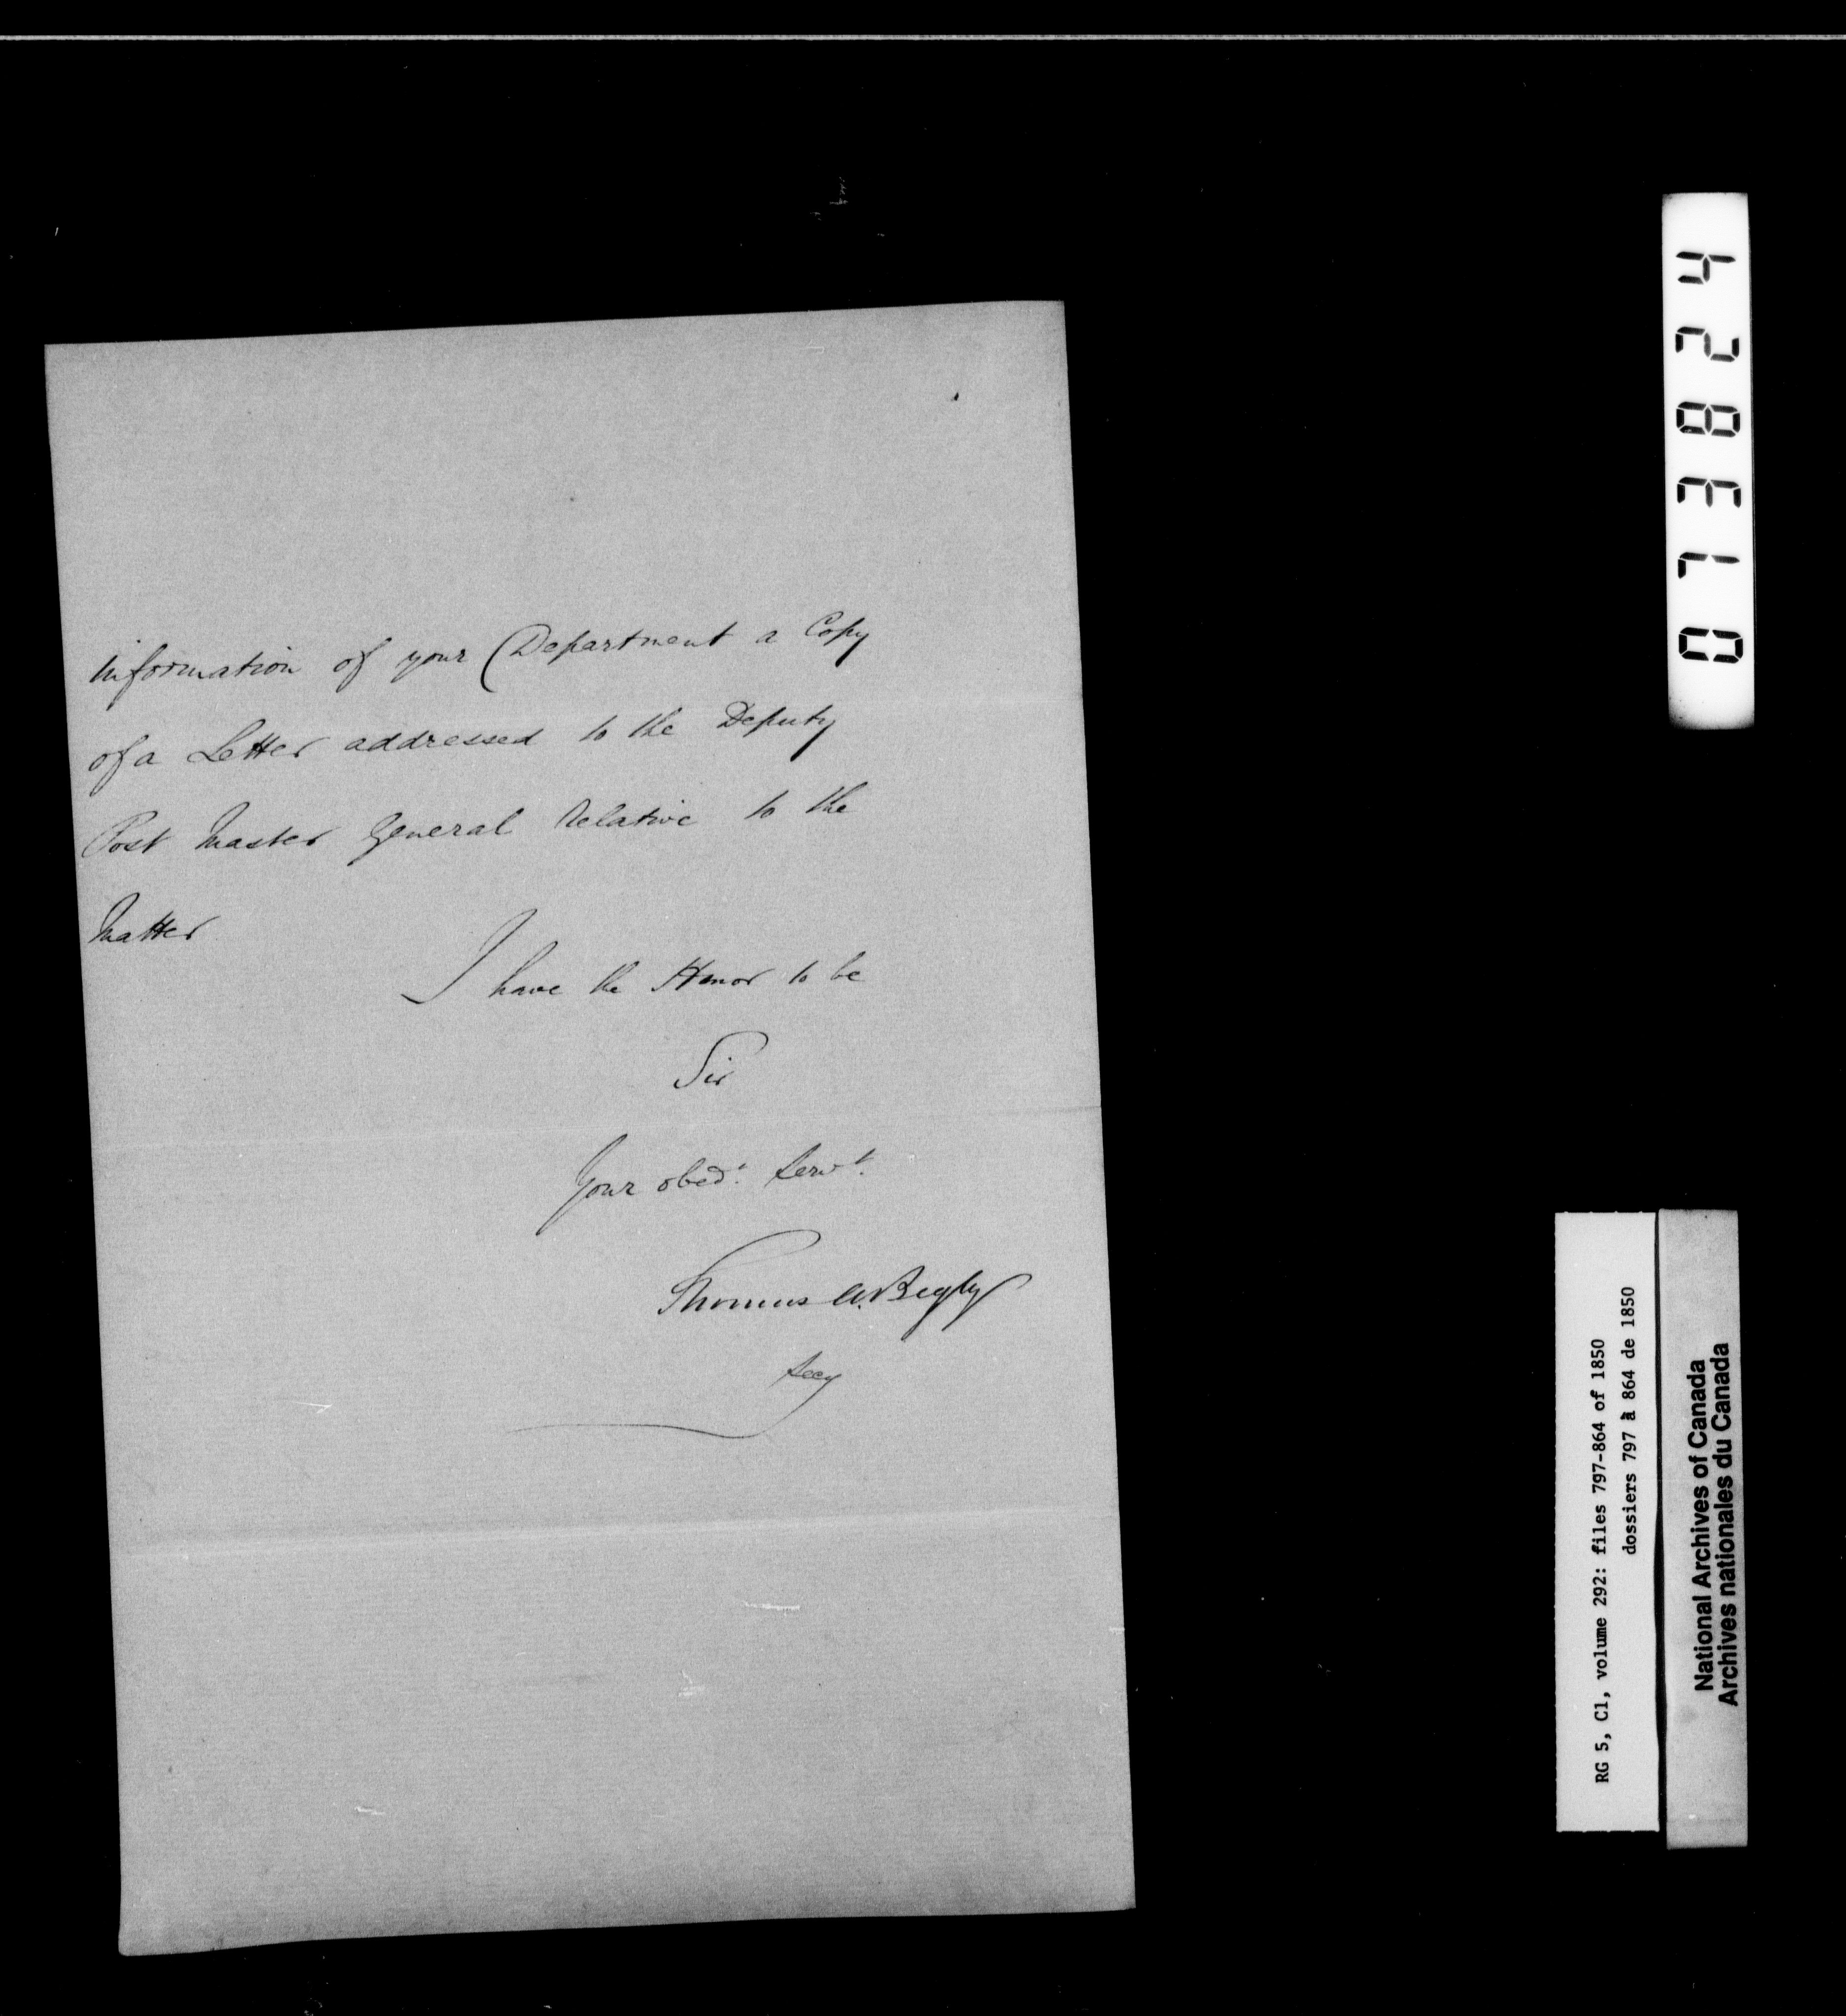 information of your Department a Copy
of a Letter addressed to the Deputy
Post Master General Relative to the
Matter
I have the Honor to be
Sir
Your obedt. Servt.
Thomas A. Begly
Secy
013824
RG 5, C1, volume 292: files 797-864 of 1850
dossiers 797 à 864 de 1850
National Archives of Canada
Archives nationales du Canada